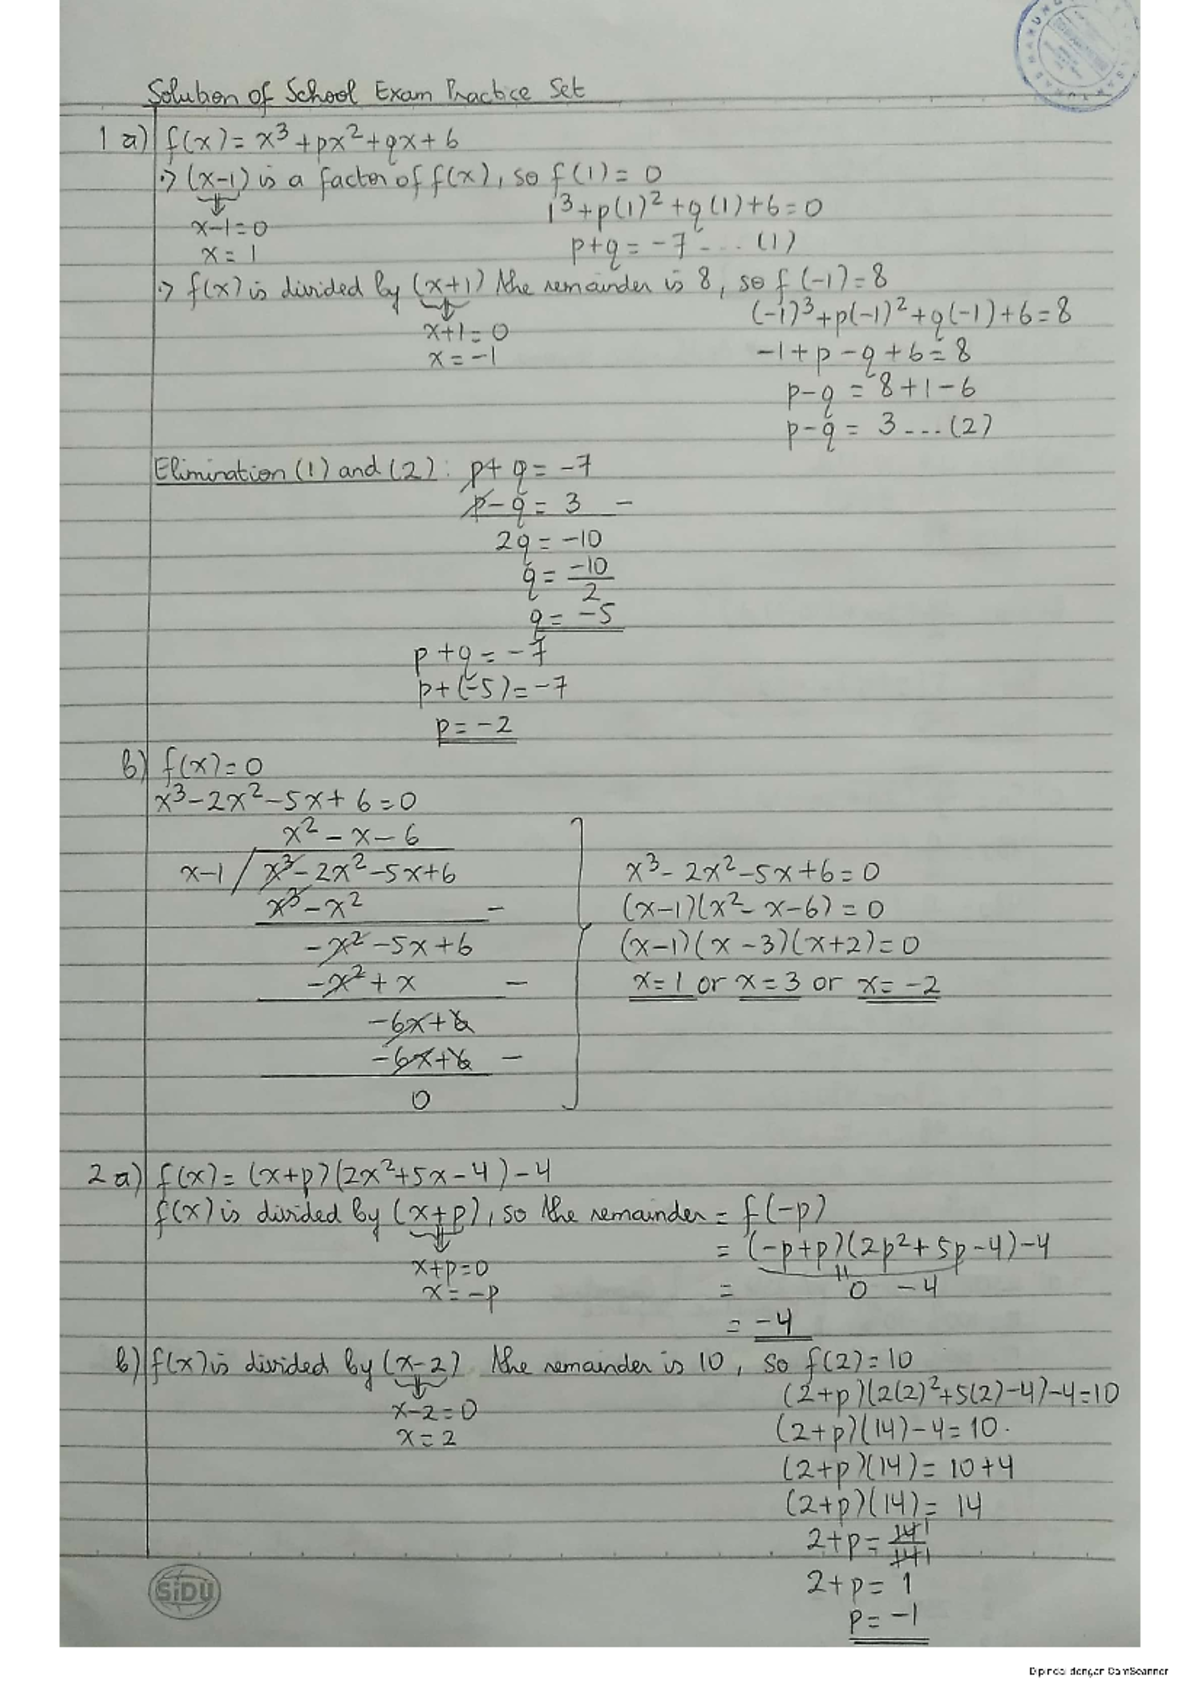 Solution of School Exam Practice Set
1 a) f(x) = x³ + px² + qx + 6
·> (x-1) is a factor of f(x), so f(1) = 0
1³ + p(1)² + q(1) + 6 = 0
x-1=0
p+q = -7 ... (1)
x = 1
·> f(x) is divided by (x+1) the remainder is 8, so f(-1) = 8
(-1)³ + p(-1)² + q(-1) + 6 = 8
x+1=0
x = -1
-1 + p - q + 6 = 8
p-q = 8+1-6
p-q = 3 ... (2)
Elimination (1) and (2) : p+ q = -7
p - q = 3 -
2q = -10
q = -10/2
q = -5
p + q = -7
p + (-5) = -7
p = -2
b) f(x) = 0
x³ - 2x² - 5x + 6 = 0
x² - x - 6
x-1 / x³ - 2x² - 5x + 6
x³ - 2x² - 5x + 6 = 0
x³ - x² -
(x-1)(x² - x - 6) = 0
-x² - 5x + 6
(x-1)(x-3)(x+2) = 0
-x² + x -
x = 1 or x = 3 or x = -2
-6x + 6
-6x + 6 -
0
2 a) f(x) = (x+p)(2x²+5x-4) - 4
f(x) is divided by (x+p), so the remainder = f(-p)
= (-p+p)(2p²+5p-4)-4
x+p=0
x = -p
= 0 - 4
= -4
b) f(x) is divided by (x-2) the remainder is 10, so f(2) = 10
(2+p)(2(2)²+5(2)-4)-4=10
x-2=0
(2+p)(14)-4=10.
x=2
(2+p)(14) = 10+4
(2+p)(14) = 14
2+p = 14 1/14 1
2+p = 1
p = -1
SiDU
Dipindai dengan CamScanner